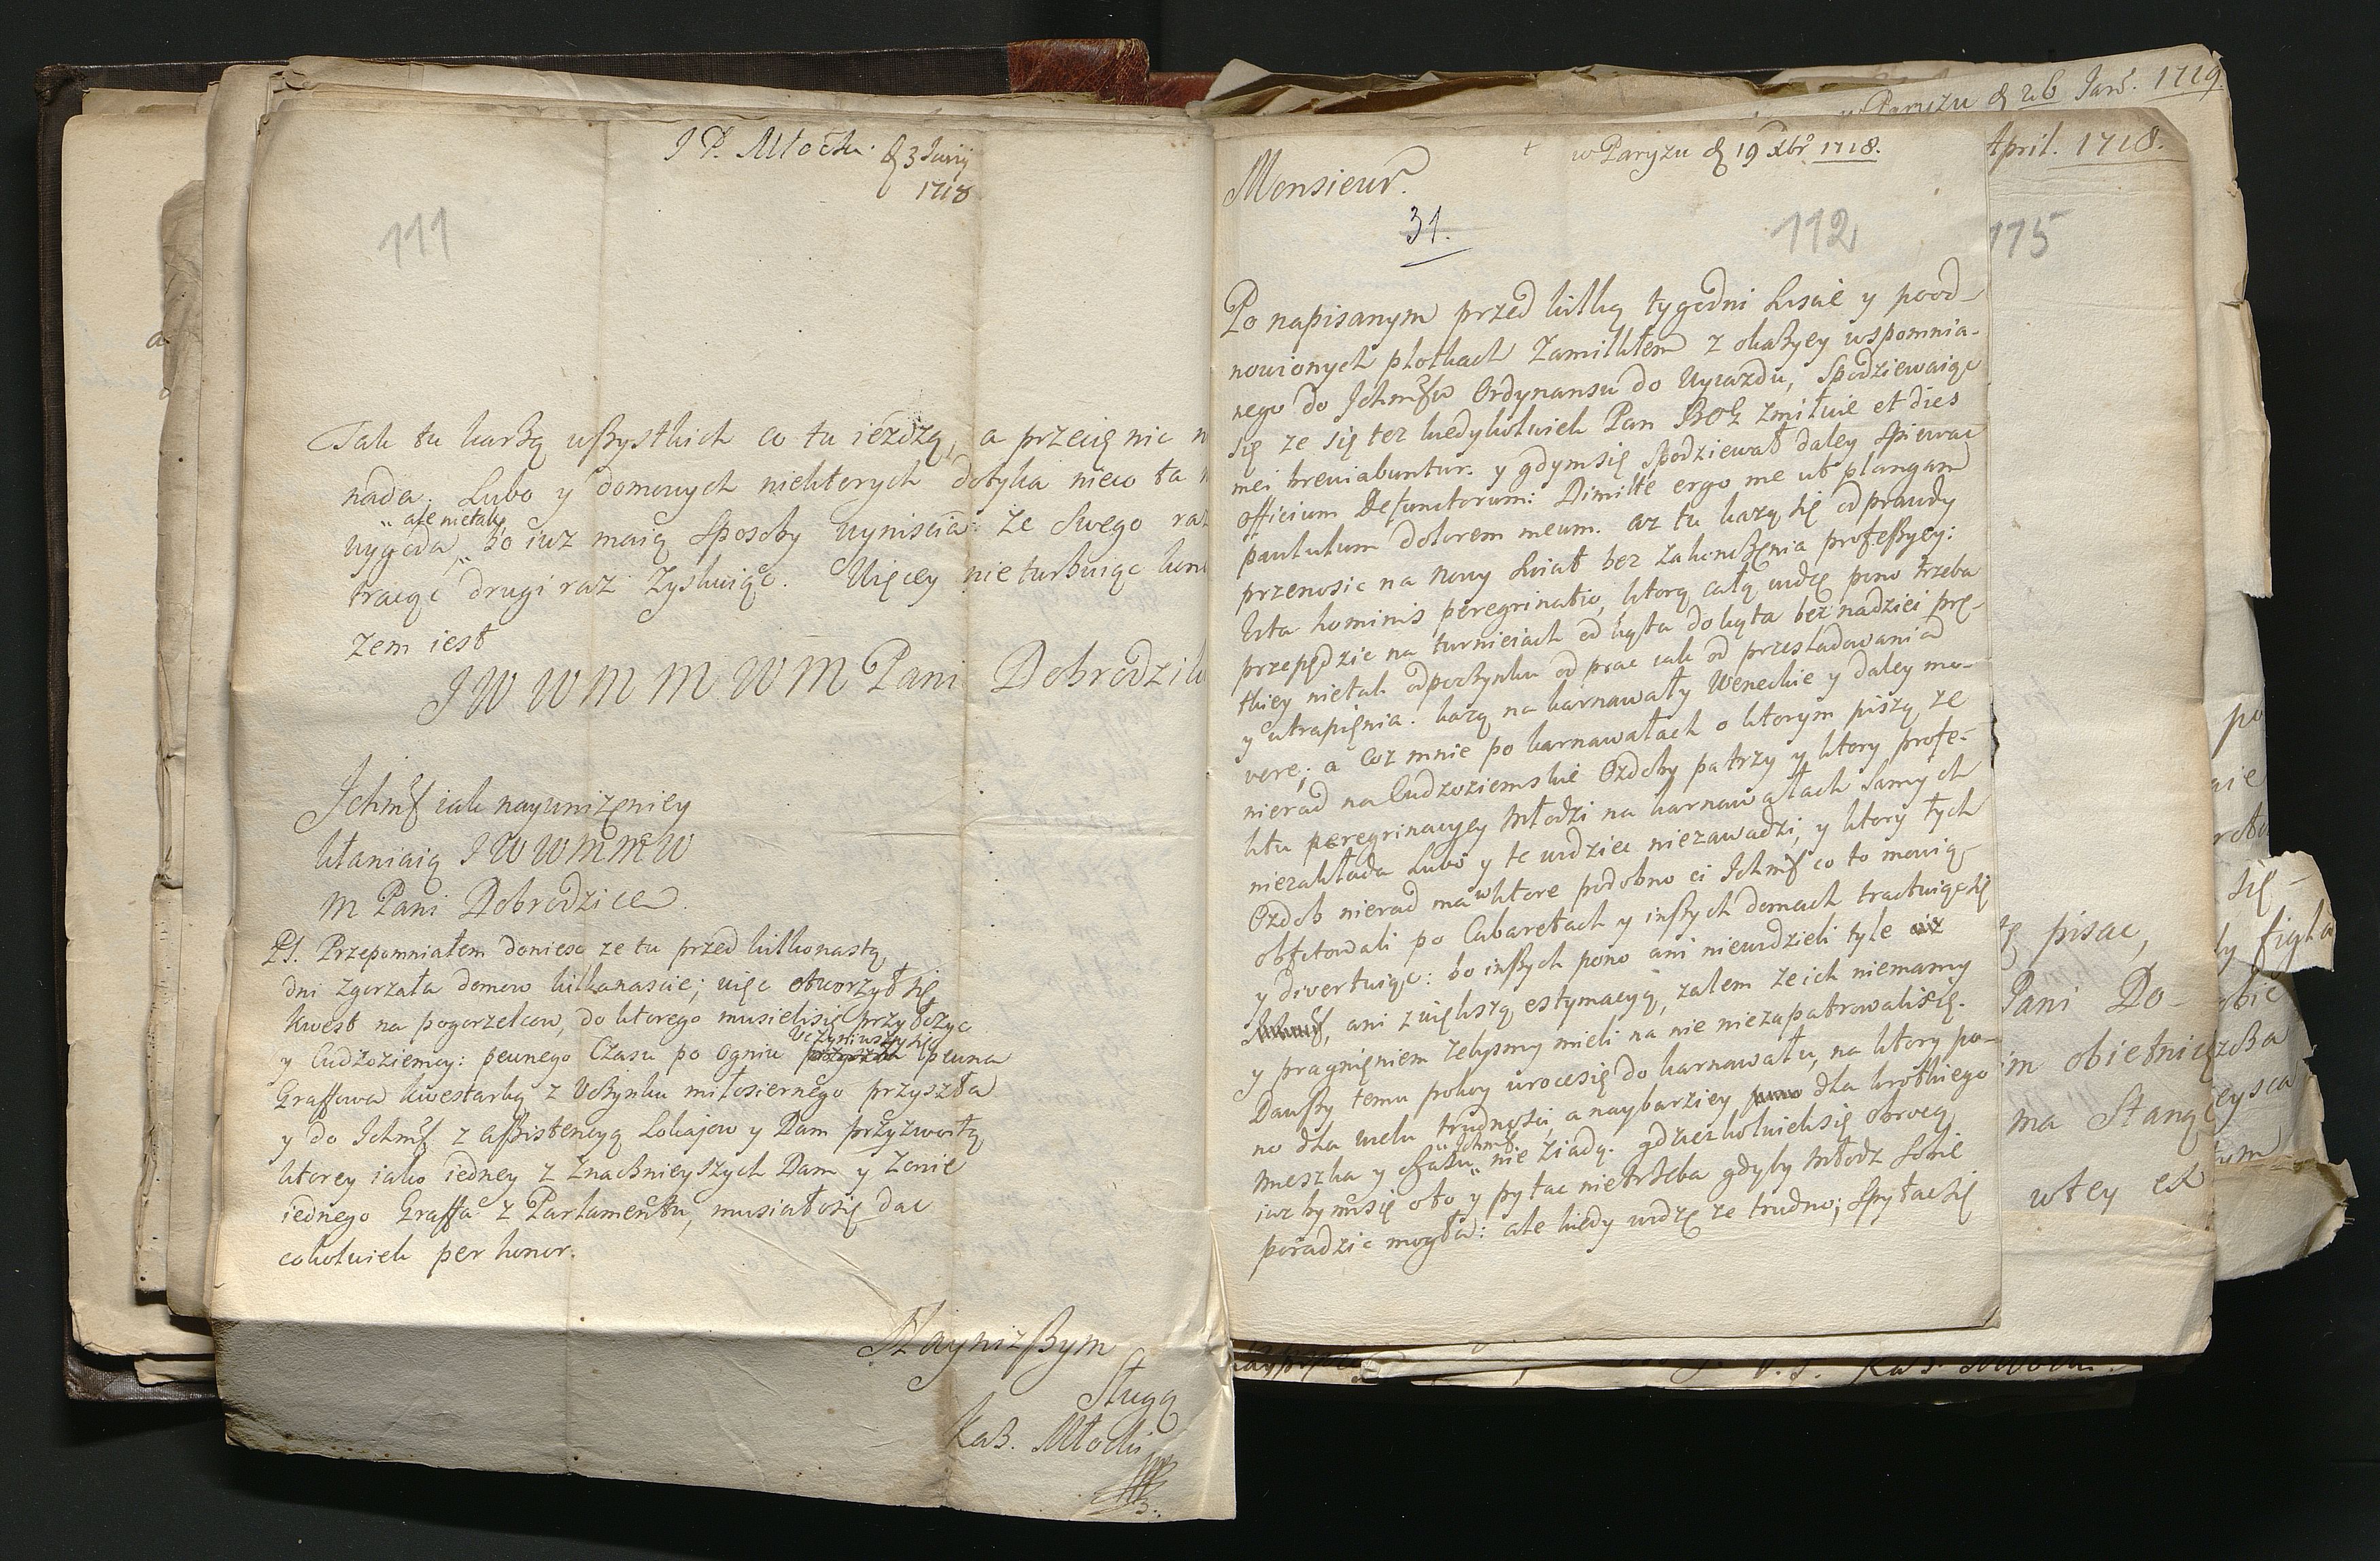 J P. Młocki. d 3 Junij
1718
111
Tak tu karżą wszystkich co tu ieżdżą, a przecię nic n
nada. Lubo y domowych niektorych dotyka nieco ta
ale nietak
wygoda, bo iuz maią sposoby wyniscia: ze swego raz
tracąc drugi raz zyskuiąc. Więcey nieturbuiąc kon
zem iest
J W W M M W M Pani Dobrodzik
Jchmść iak nayunizęniey
kłaniaią J W W M M W
M Pani Dobrodzice.
PS. Przepomniałem doniesc, ze tu przed kilkonastą
dni zgorzała domow kilkanascie; więc otworzył się
kwest na pogorzelcow, do ktorego musielisię przyłozyc
y Cudzoziemcy: pewnego czasu po ogniu pewna
Graffowa kwestarką z Uczynku miłosiernego przyszła
y do Jchmść z assistencyą Lokajow y Dam przyzwoitą
ktorey iako iedney z znacznieyszych Dam y zonie
iednego Graffa z Parlamentu, musiałosię dac
cokolwiek per honor.
Nayniższym
Sługą
Kaz. Młocki
w Paryzu d 26 Jan. 1719.
April. 1718.
w Paryzu d 19 Xbr 1718.
Monsieur.
31.
112
175
Po napisanym przed kilką tygodni Liscie y pood-
nowionych plotkach zamilkłem z okazyey wspomnia-
nego do Jchmściow Ordynansu do Wyiazdu, Spodziewaiąc
się ze się tez kiedykolwiek Pan BOG zmiłuie et dies
mei breviabuntur. y gdymsię spodziewał daley spiewac
officium Defunctorum: Dimitte ergo me ut plangam
paululum dolorem meum. az tu kazą się odprawdy
przenosic na nowy swiat bez zakonczenia professyey:
Ista hominis peregrinatio, ktorą całą widzę pono trzeba
przepędzic na turnieiach od kąta do kąta bez nadziei prę-
tkiey nietak odpoczynku od prac iak od przesladowania
y utrapięnia. kazą na karnawały Weneckie y daley mo-
vere; a coz mnie po karnawałach o ktorym piszą ze
nierad na Cudzoziemskie Ozdoby patrzy y ktory profe-
ktu peregrinacyey Młodzi na karnawałach samych
niezakłada Lubo y te widziec niezawadzi, y ktory tych
Ozdob nierad ma w ktore podobno ci Jchmść co to mowią
obfitowali po Cabaretach y inszych domach tractuiąc się
y divertuiąc: bo inszych pono ani niewidzieli tyle
ani z większą estymacyą, zalem ze ich niemamy
y pragnięniem zebysmy mieli na nie niezapatrowalisię.
Dawszy temu pokoy wrocesię do karnawału, na ktory po-
no dla wielu trudnosci, a naybarziey dla krotkiego
Jchmść
mieszka y czasu nie ziadą. gdziezkolwieksię obrocą
iuz bymsię oto y pytac nietrzeba gdyby Młodz sobie
poradzic mogła: ale kiedy widzę ze trudno; spytac się
pisac,
Pani Do-
im obietnic
ma Stang
w tey
się
figla